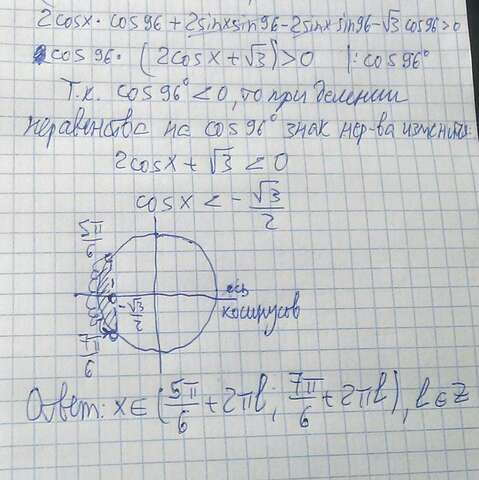 2cosx · cos96 + 2sinx sin96 - 2sinx sin96 - √3 cos96 > 0
cos 96° (2cosx + √3) > 0 |: cos96°
Т.к. cos96° < 0, то при делении
неравенства на cos96° знак нер-ва изменится:
2cosx + √3 < 0
cosx < -√3/2
5π/6
-√3/2
ось
косинусов
7π/6
Ответ: x ∈ (5π/6 + 2πl; 7π/6 + 2πl), l ∈ Z